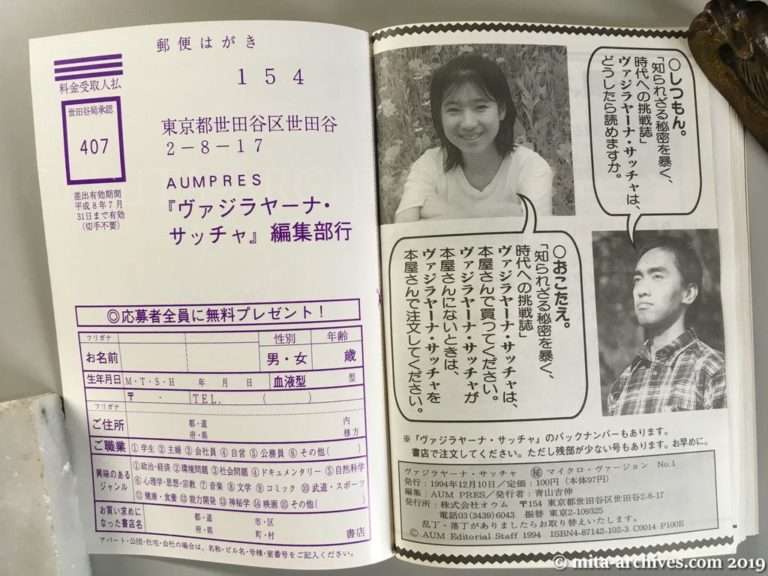 郵便はがき
154
料金受取人払
世田谷局承認
407
差出有効期間
平成8年7月
31日まで有効
(切手不要)
東京都世田谷区世田谷
2-8-17
AUMPRES
『ヴァジラヤーナ・
サッチャ』編集部行
◎応募者全員に無料プレゼント!
フリガナ
お名前
性別
男・女
年齢
歳
生年月日
M・T・S・H 年 月 日
血液型
型
〒 ・ TEL. ( )
フリガナ
ご住所
都・道
府・県
内
様方
ご職業
①学生 ②主婦 ③会社員 ④自営 ⑤公務員 ⑥その他( )
興味のある
ジャンル
①政治・経済 ②環境問題 ③社会問題 ④ドキュメンタリー ⑤自然科学
⑥心理学・思想・宗教 ⑦音楽 ⑧文学 ⑨コミック ⑩武道・スポーツ
⑪健康・食養 ⑫能力開発 ⑬神秘学 ⑭映画 ⑮その他( )
お買い求めに
なった書店名
都・道
府・県
市・区
町・村
書店
アパート・公団・社宅・会社の場合は、名称・ビル名・号棟・室番号をご記入ください。
○しつもん。
「知られざる秘密を暴く、
時代への挑戦誌」
ヴァジラヤーナ・サッチャは、
どうしたら読めますか。
○おこたえ。
「知られざる秘密を暴く、
時代への挑戦誌」
ヴァジラヤーナ・サッチャは、
本屋さんで買ってください。
ヴァジラヤーナ・サッチャが
本屋さんにないときは、
ヴァジラヤーナ・サッチャを
本屋さんで注文してください。
※『ヴァジラヤーナ・サッチャ』のバックナンバーもあります。
書店で注文してください。ただし残部が少ない号もあります。お早めに。
ヴァジラヤーナ・サッチャ ㊙ マイクロ・ヴァージョン No.1
発行:1994年12月10日/定価:100円(本体97円)
編集:AUM PRES/発行者:青山吉伸
発行所:株式会社オウム 〒154 東京都世田谷区世田谷2-8-17
電話03(3439)6043 振替 東京2-109325
乱丁・落丁がありましたらお取替えいたします。
© AUM Editorial Staff 1994 ISBN4-87142-102-3 C0014 P100E
© mita-archives.com 2019